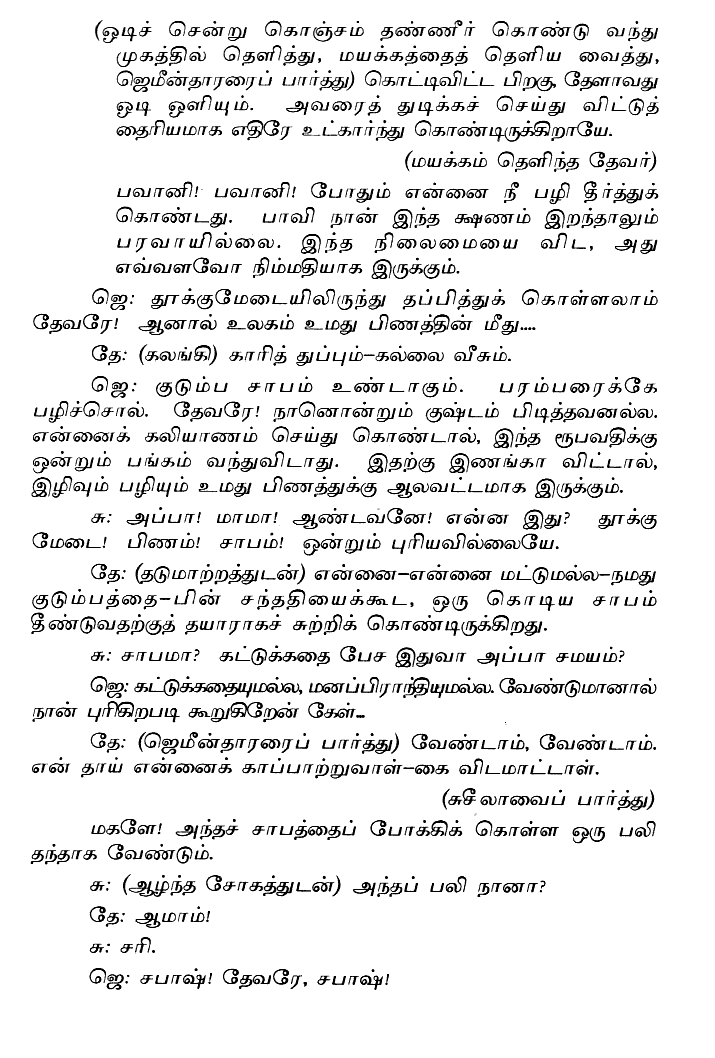 (ஒடிச் சென்று கொஞ்சம் தண்ணீர் கொண்டு வந்து
முகத்தில் தெளித்து, மயக்கத்தைத் தெளிய வைத்து,
ஜெமீன்தாரரைப் பார்த்து) கொட்டிவிட்ட பிறகு, தேளாவது
ஒடி ஒளியும். அவரைத் துடிக்கச் செய்து விட்டுத்
தைரியமாக எதிரே உட்கார்ந்து கொண்டிருக்கிறாயே.
(மயக்கம் தெளிந்த தேவர்)
பவானி! பவானி! போதும் என்னை நீ பழி தீர்த்துக்
கொண்டது. பாவி நான் இந்த க்ஷணம் இறந்தாலும்
பரவாயில்லை. இந்த நிலைமையை விட, அது
எவ்வளவோ நிம்மதியாக இருக்கும்.
ஜெ: தூக்குமேடையிலிருந்து தப்பித்துக் கொள்ளலாம்
தேவரே! ஆனால் உலகம் உமது பிணத்தின் மீது....
தே: (கலங்கி) காரித் துப்பும்–கல்லை வீசும்.
ஜெ: குடும்ப சாபம் உண்டாகும். பரம்பரைக்கே
பழிச்சொல். தேவரே! நானொன்றும் குஷ்டம் பிடித்தவனல்ல.
என்னைக் கலியாணம் செய்து கொண்டால், இந்த ரூபவதிக்கு
ஒன்றும் பங்கம் வந்துவிடாது. இதற்கு இணங்கா விட்டால்,
இழிவும் பழியும் உமது பிணத்துக்கு ஆலவட்டமாக இருக்கும்.
சு: அப்பா! மாமா! ஆண்டவனே! என்ன இது? தூக்கு
மேடை! பிணம்! சாபம்! ஒன்றும் புரியவில்லையே.
தே: (தடுமாற்றத்துடன்) என்னை–என்னை மட்டுமல்ல–நமது
குடும்பத்தை–பின் சந்ததியைக்கூட, ஒரு கொடிய சாபம்
தீண்டுவதற்குத் தயாராகச் சுற்றிக் கொண்டிருக்கிறது.
சு: சாபமா? கட்டுக்கதை பேச இதுவா அப்பா சமயம்?
ஜெ: கட்டுக்கதையுமல்ல, மனப்பிராந்தியுமல்ல. வேண்டுமானால்
நான் புரிகிறபடி கூறுகிறேன் கேள்...
தே: (ஜெமீன்தாரரைப் பார்த்து) வேண்டாம், வேண்டாம்.
என் தாய் என்னைக் காப்பாற்றுவாள்–கை விடமாட்டாள்.
(சுசீலாவைப் பார்த்து)
மகளே! அந்தச் சாபத்தைப் போக்கிக் கொள்ள ஒரு பலி
தந்தாக வேண்டும்.
சு: (ஆழ்ந்த சோகத்துடன்) அந்தப் பலி நானா?
தே: ஆமாம்!
சு: சரி.
ஜெ: சபாஷ்! தேவரே, சபாஷ்!